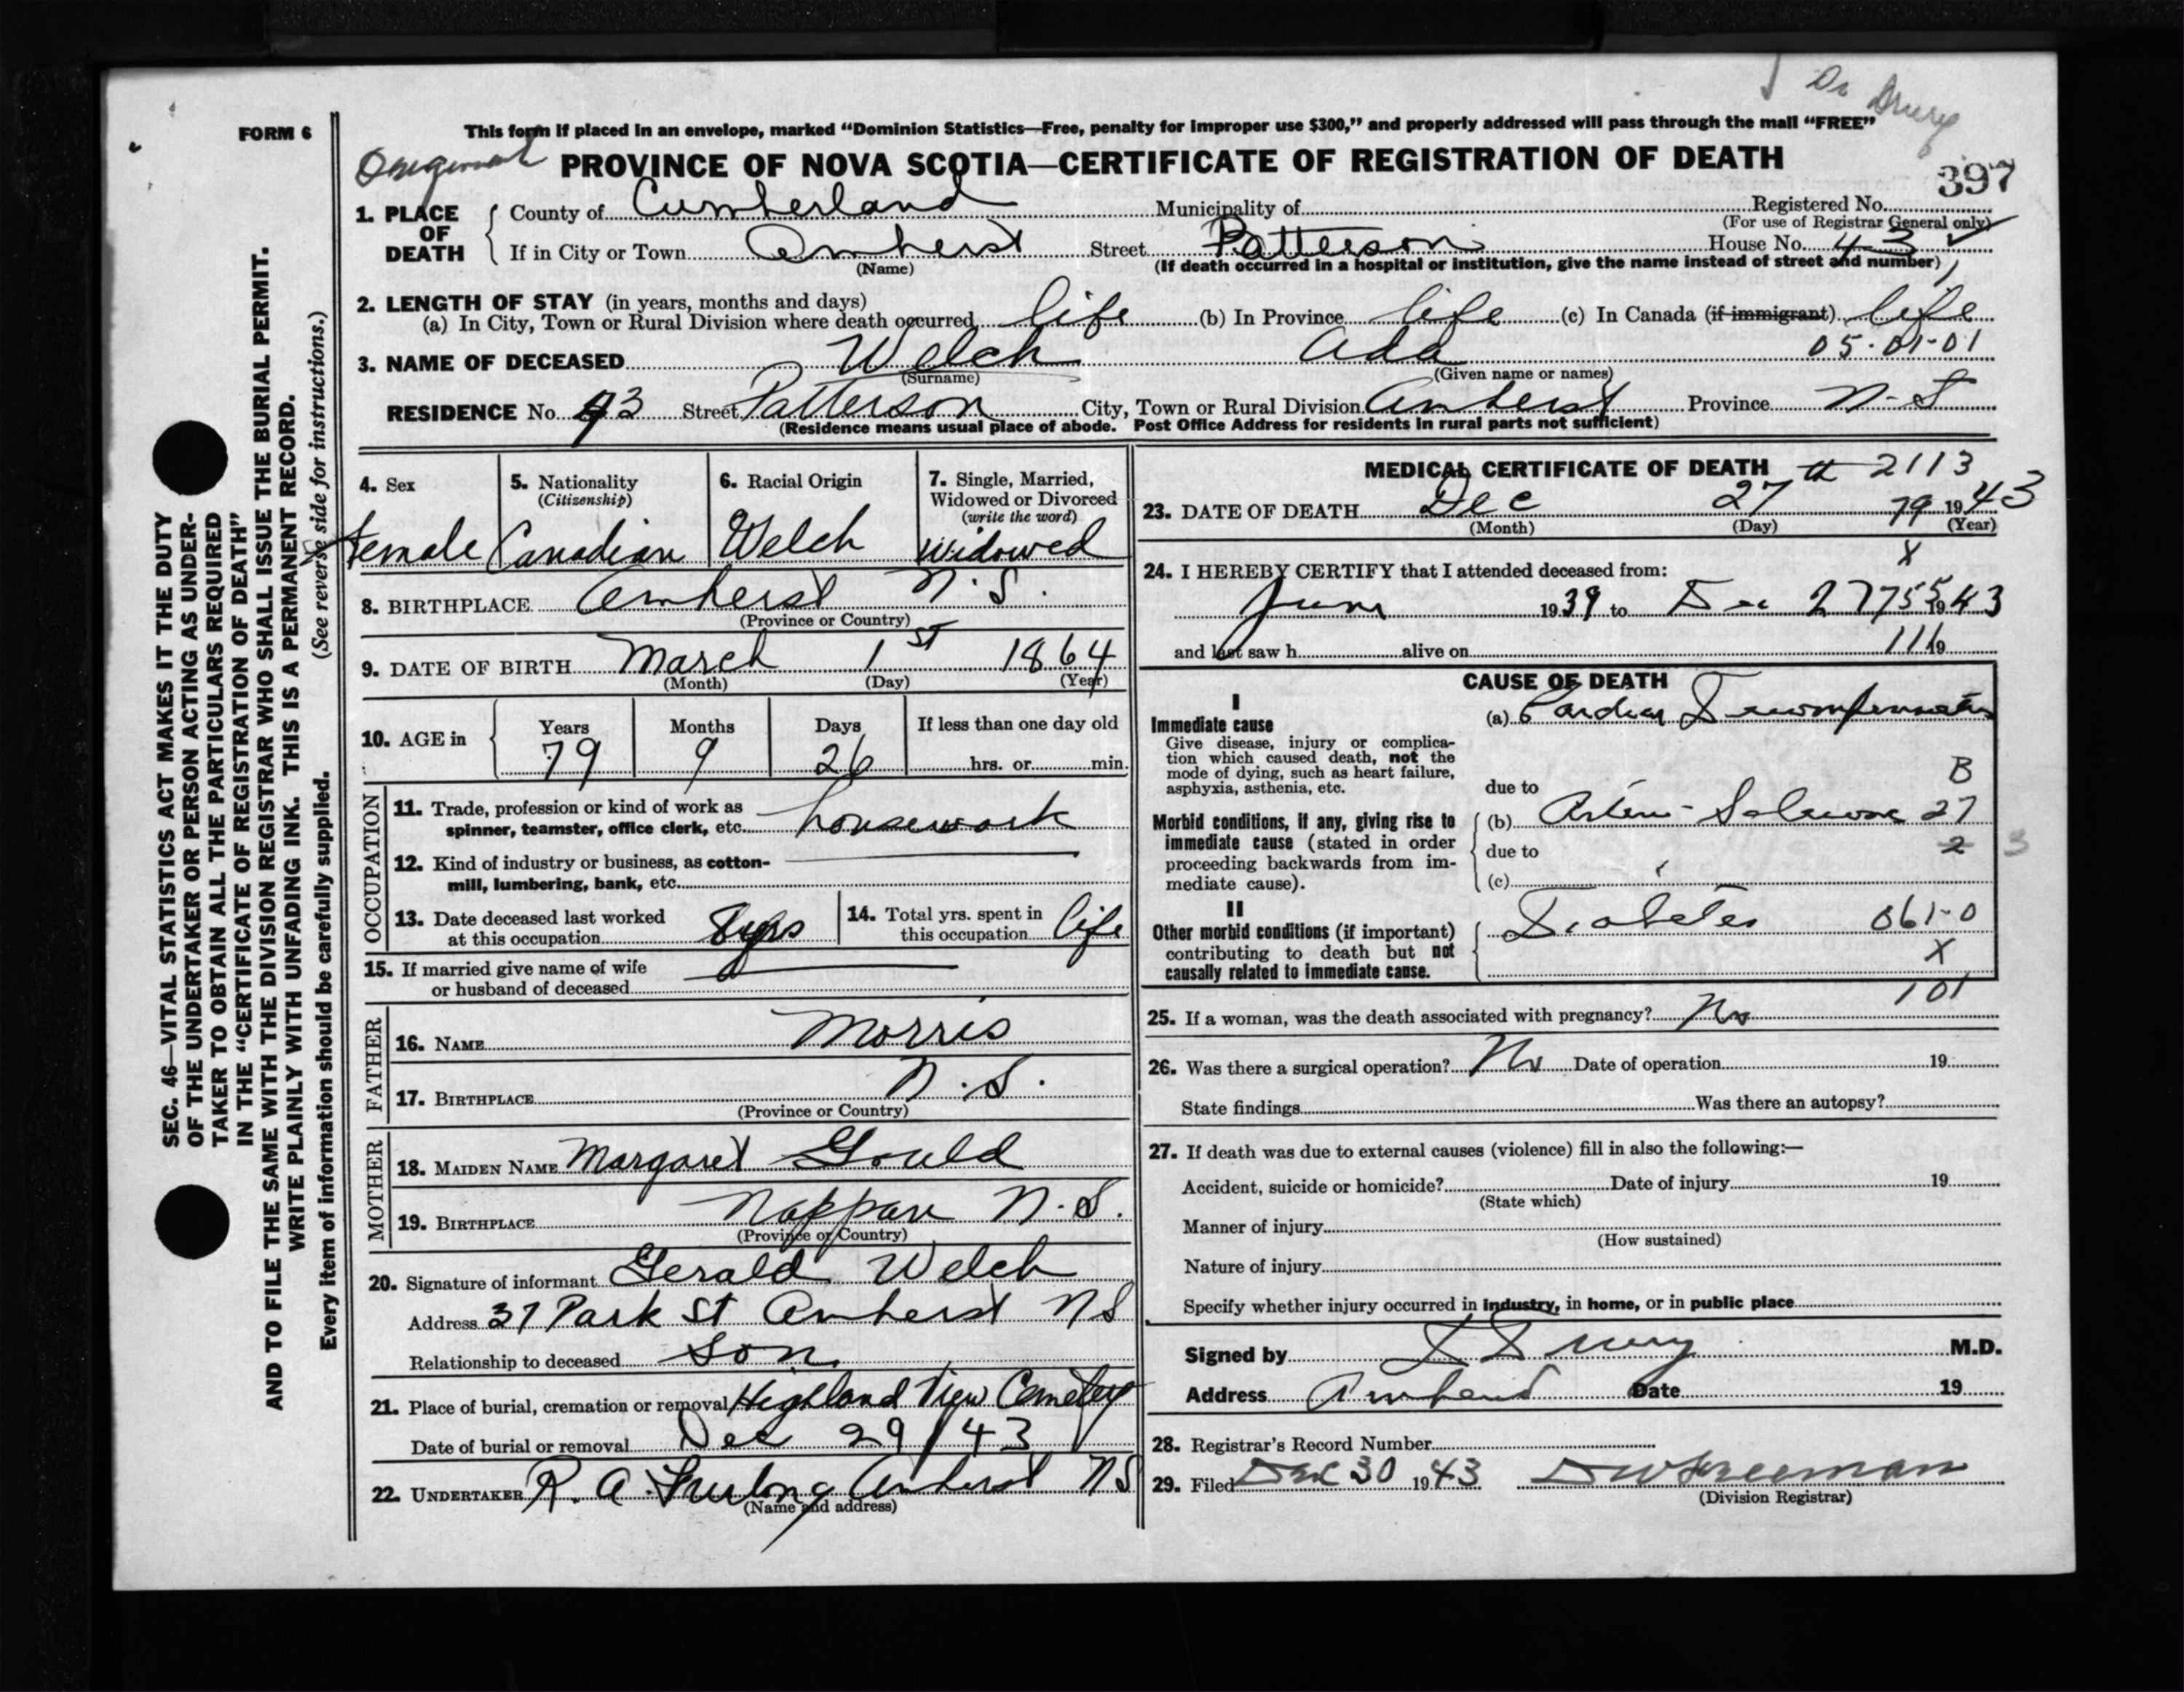 Dr Drury
FORM 6
This form if placed in an envelope, marked "Dominion Statistics—Free, penalty for improper use $300," and properly addressed will pass through the mail "FREE"
PROVINCE OF NOVA SCOTIA—CERTIFICATE OF REGISTRATION OF DEATH
397
1. PLACE OF DEATH County of Cumberland Municipality of Registered No.
(For use of Registrar General only)
If in City or Town Amherst Street Patterson House No. 43
(Name) (If death occurred in a hospital or institution, give the name instead of street and number)
2. LENGTH OF STAY (in years, months and days)
(a) In City, Town or Rural Division where death occurred life (b) In Province life (c) In Canada (if immigrant) life
3. NAME OF DECEASED Welch Ada 05-01-01
(Surname) (Given name or names)
RESIDENCE No. 43 Street Patterson City, Town or Rural Division Amherst Province N-S
(Residence means usual place of abode. Post Office Address for residents in rural parts not sufficient)
4. Sex 5. Nationality (Citizenship) 6. Racial Origin 7. Single, Married, Widowed or Divorced (write the word)
female Canadian Welch Widowed
8. BIRTHPLACE Amherst N.S.
(Province or Country)
9. DATE OF BIRTH March 1st 1864
(Month) (Day) (Year)
10. AGE in Years Months Days If less than one day old
79 9 26 hrs. or min.
OCCUPATION
11. Trade, profession or kind of work as spinner, teamster, office clerk, etc. housework
12. Kind of industry or business, as cotton-mill, lumbering, bank, etc.
13. Date deceased last worked at this occupation 8 yrs 14. Total yrs. spent in this occupation life
15. If married give name of wife or husband of deceased
FATHER
16. NAME Morris
17. BIRTHPLACE N.S.
(Province or Country)
MOTHER
18. MAIDEN NAME Margaret Gould
19. BIRTHPLACE Nappan N.S.
(Province or Country)
20. Signature of informant Gerald Welch
Address 37 Park St Amherst NS
Relationship to deceased Son
21. Place of burial, cremation or removal Highland View Cemetery
Date of burial or removal Dec 29/43
22. UNDERTAKER R. A. Furlong Amherst NS
(Name and address)
MEDICAL CERTIFICATE OF DEATH 2113
23. DATE OF DEATH Dec 27th 79 1943
(Month) (Day) (Year)
X
24. I HEREBY CERTIFY that I attended deceased from:
June 1939 to Dec 27 1943
and last saw h alive on 116 19
CAUSE OF DEATH
I
Immediate cause
Give disease, injury or complication which caused death, not the mode of dying, such as heart failure, asphyxia, asthenia, etc.
(a) Cardiac Decompensation
B
due to
Morbid conditions, if any, giving rise to immediate cause (stated in order proceeding backwards from immediate cause).
(b) Arterio-Sclerosis 27
due to 2 3
(c)
II
Other morbid conditions (if important) contributing to death but not causally related to immediate cause.
Diabetes 061-0
X
101
25. If a woman, was the death associated with pregnancy? No
26. Was there a surgical operation? No Date of operation 19
State findings Was there an autopsy?
27. If death was due to external causes (violence) fill in also the following:—
Accident, suicide or homicide? Date of injury 19
(State which)
Manner of injury
(How sustained)
Nature of injury
Specify whether injury occurred in industry, in home, or in public place
Signed by D Drury M.D.
Address Amherst Date 19
28. Registrar's Record Number
29. Filed Dec 30 1943 D W Freeman
(Division Registrar)
SEC. 46—VITAL STATISTICS ACT MAKES IT THE DUTY
OF THE UNDERTAKER OR PERSON ACTING AS UNDER-
TAKER TO OBTAIN ALL THE PARTICULARS REQUIRED
IN THE "CERTIFICATE OF REGISTRATION OF DEATH"
AND TO FILE THE SAME WITH THE DIVISION REGISTRAR WHO SHALL ISSUE THE BURIAL PERMIT.
WRITE PLAINLY WITH UNFADING INK. THIS IS A PERMANENT RECORD.
(See reverse side for instructions.)
Every item of information should be carefully supplied.